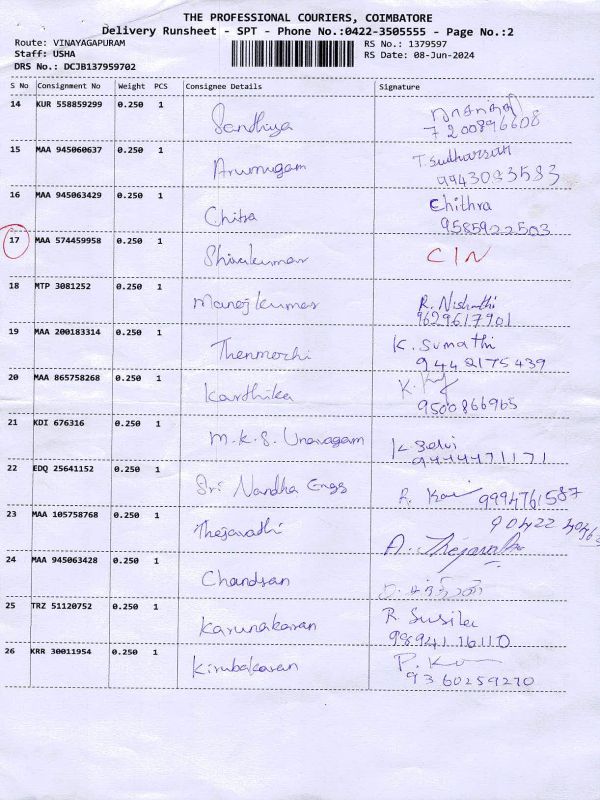 THE PROFESSIONAL COURIERS, COIMBATORE
Delivery Runsheet - SPT - Phone No.:0422-3505555 - Page No.:2
Route: VINAYAGAPURAM
Staff: USHA
DRS No.: DCJB137959702
RS No.: 1379597
RS Date: 08-Jun-2024
S No Consignment No Weight PCS Consignee Details Signature
14 KUR 558859299 0.250 1 Sandhiya
7200896608
15 MAA 945060637 0.250 1 Arumugam T Sudharsan
9943093583
16 MAA 945063429 0.250 1 Chitra Chithra
9585922503
17 MAA 574459958 0.250 1 Shivakumar CIN
18 MTP 3081252 0.250 1 Manojkumar R. Nishanthi
9629617901
19 MAA 200183314 0.250 1 Thenmozhi K. Sumathi
9442175439
20 MAA 865758268 0.250 1 Karthika K.
9500866965
21 KDI 676316 0.250 1 M.K.S. Unavagam K. Selvi
9444471171
22 EDQ 25641152 0.250 1 Sri Nandha Engs 9994761587
23 MAA 105758768 0.250 1 Thejavathi A.
24 MAA 945063428 0.250 1 Chandran
25 TRZ 51120752 0.250 1 Karunakaran R Susila
9894116110
26 KRR 30011954 0.250 1 Kirubakaran P.
9360259270